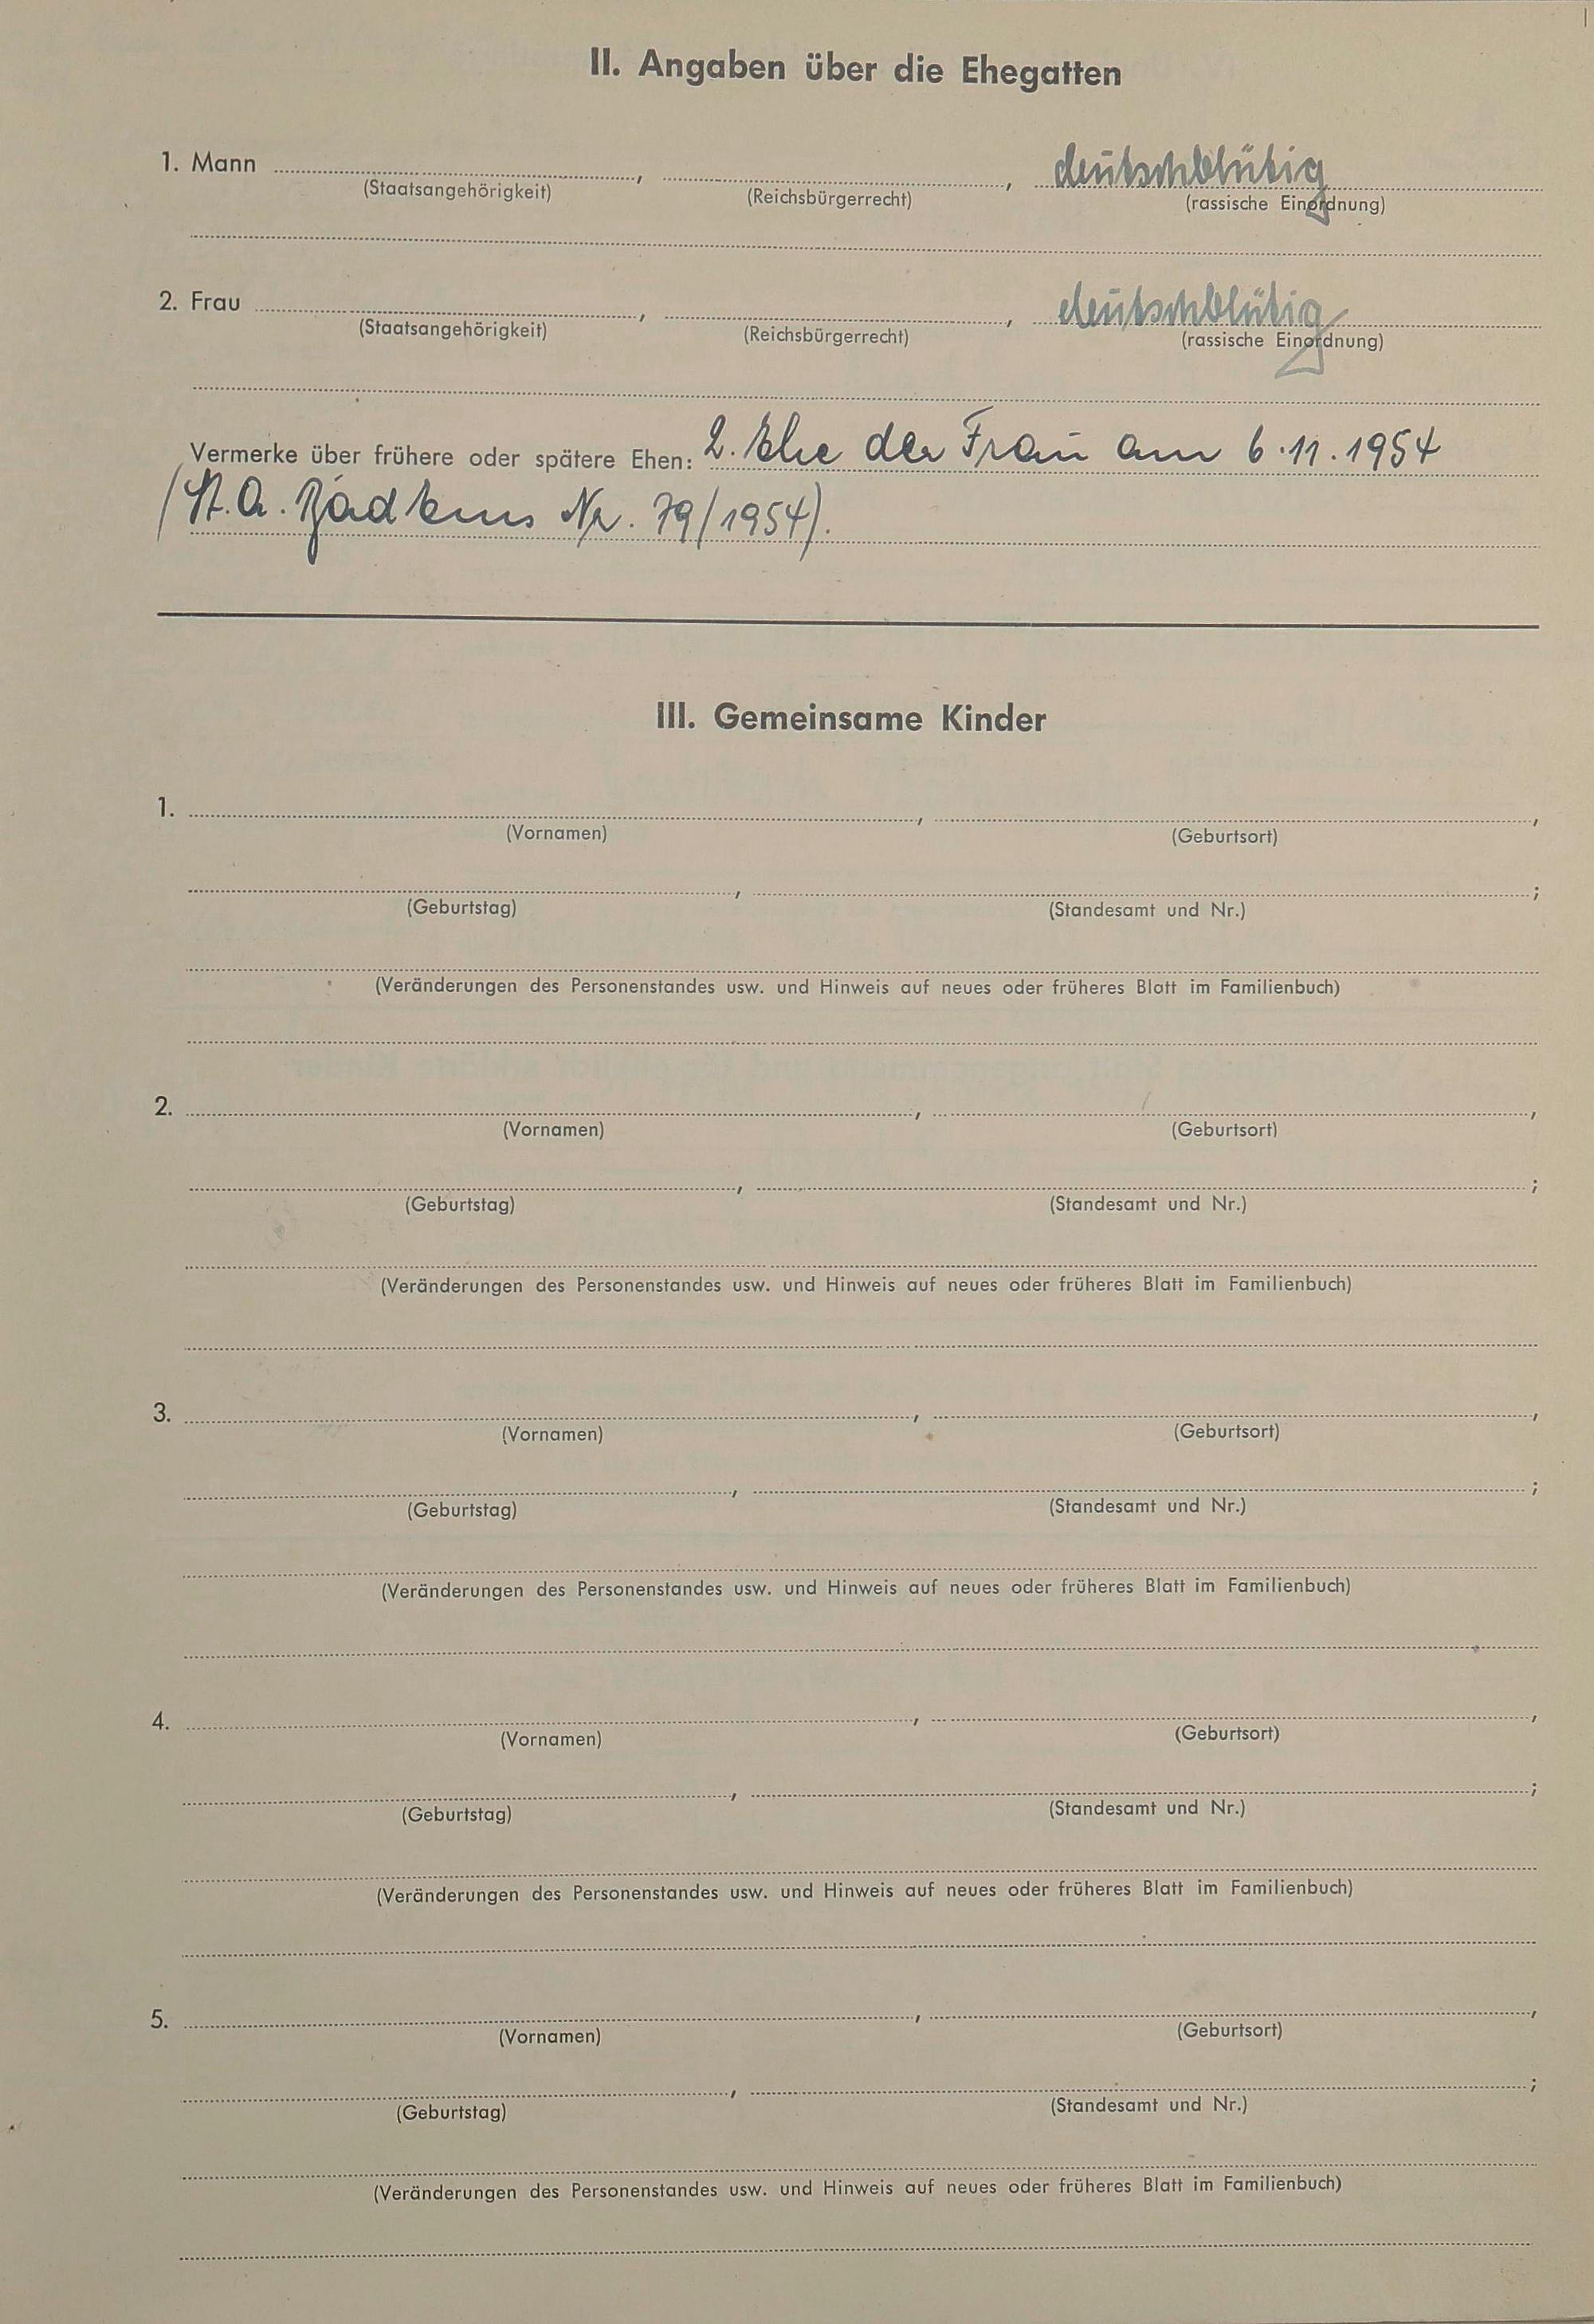 II. Angaben über die Ehegatten
1. Mann , , deutschblütig
(Staatsangehörigkeit) (Reichsbürgerrecht) (rassische Einordnung)
2. Frau , , deutschblütig
(Staatsangehörigkeit) (Reichsbürgerrecht) (rassische Einordnung)
Vermerke über frühere oder spätere Ehen: 2. Ehe der Frau am 6.11.1954
(St.A. Nr. 79/1954).
III. Gemeinsame Kinder
1. , ,
(Vornamen) (Geburtsort)
, ;
(Geburtstag) (Standesamt und Nr.)
(Veränderungen des Personenstandes usw. und Hinweis auf neues oder früheres Blatt im Familienbuch)
2. , ,
(Vornamen) (Geburtsort)
, ;
(Geburtstag) (Standesamt und Nr.)
(Veränderungen des Personenstandes usw. und Hinweis auf neues oder früheres Blatt im Familienbuch)
3. , ,
(Vornamen) (Geburtsort)
, ;
(Geburtstag) (Standesamt und Nr.)
(Veränderungen des Personenstandes usw. und Hinweis auf neues oder früheres Blatt im Familienbuch)
4. , ,
(Vornamen) (Geburtsort)
, ;
(Geburtstag) (Standesamt und Nr.)
(Veränderungen des Personenstandes usw. und Hinweis auf neues oder früheres Blatt im Familienbuch)
5. , ,
(Vornamen) (Geburtsort)
, ;
(Geburtstag) (Standesamt und Nr.)
(Veränderungen des Personenstandes usw. und Hinweis auf neues oder früheres Blatt im Familienbuch)